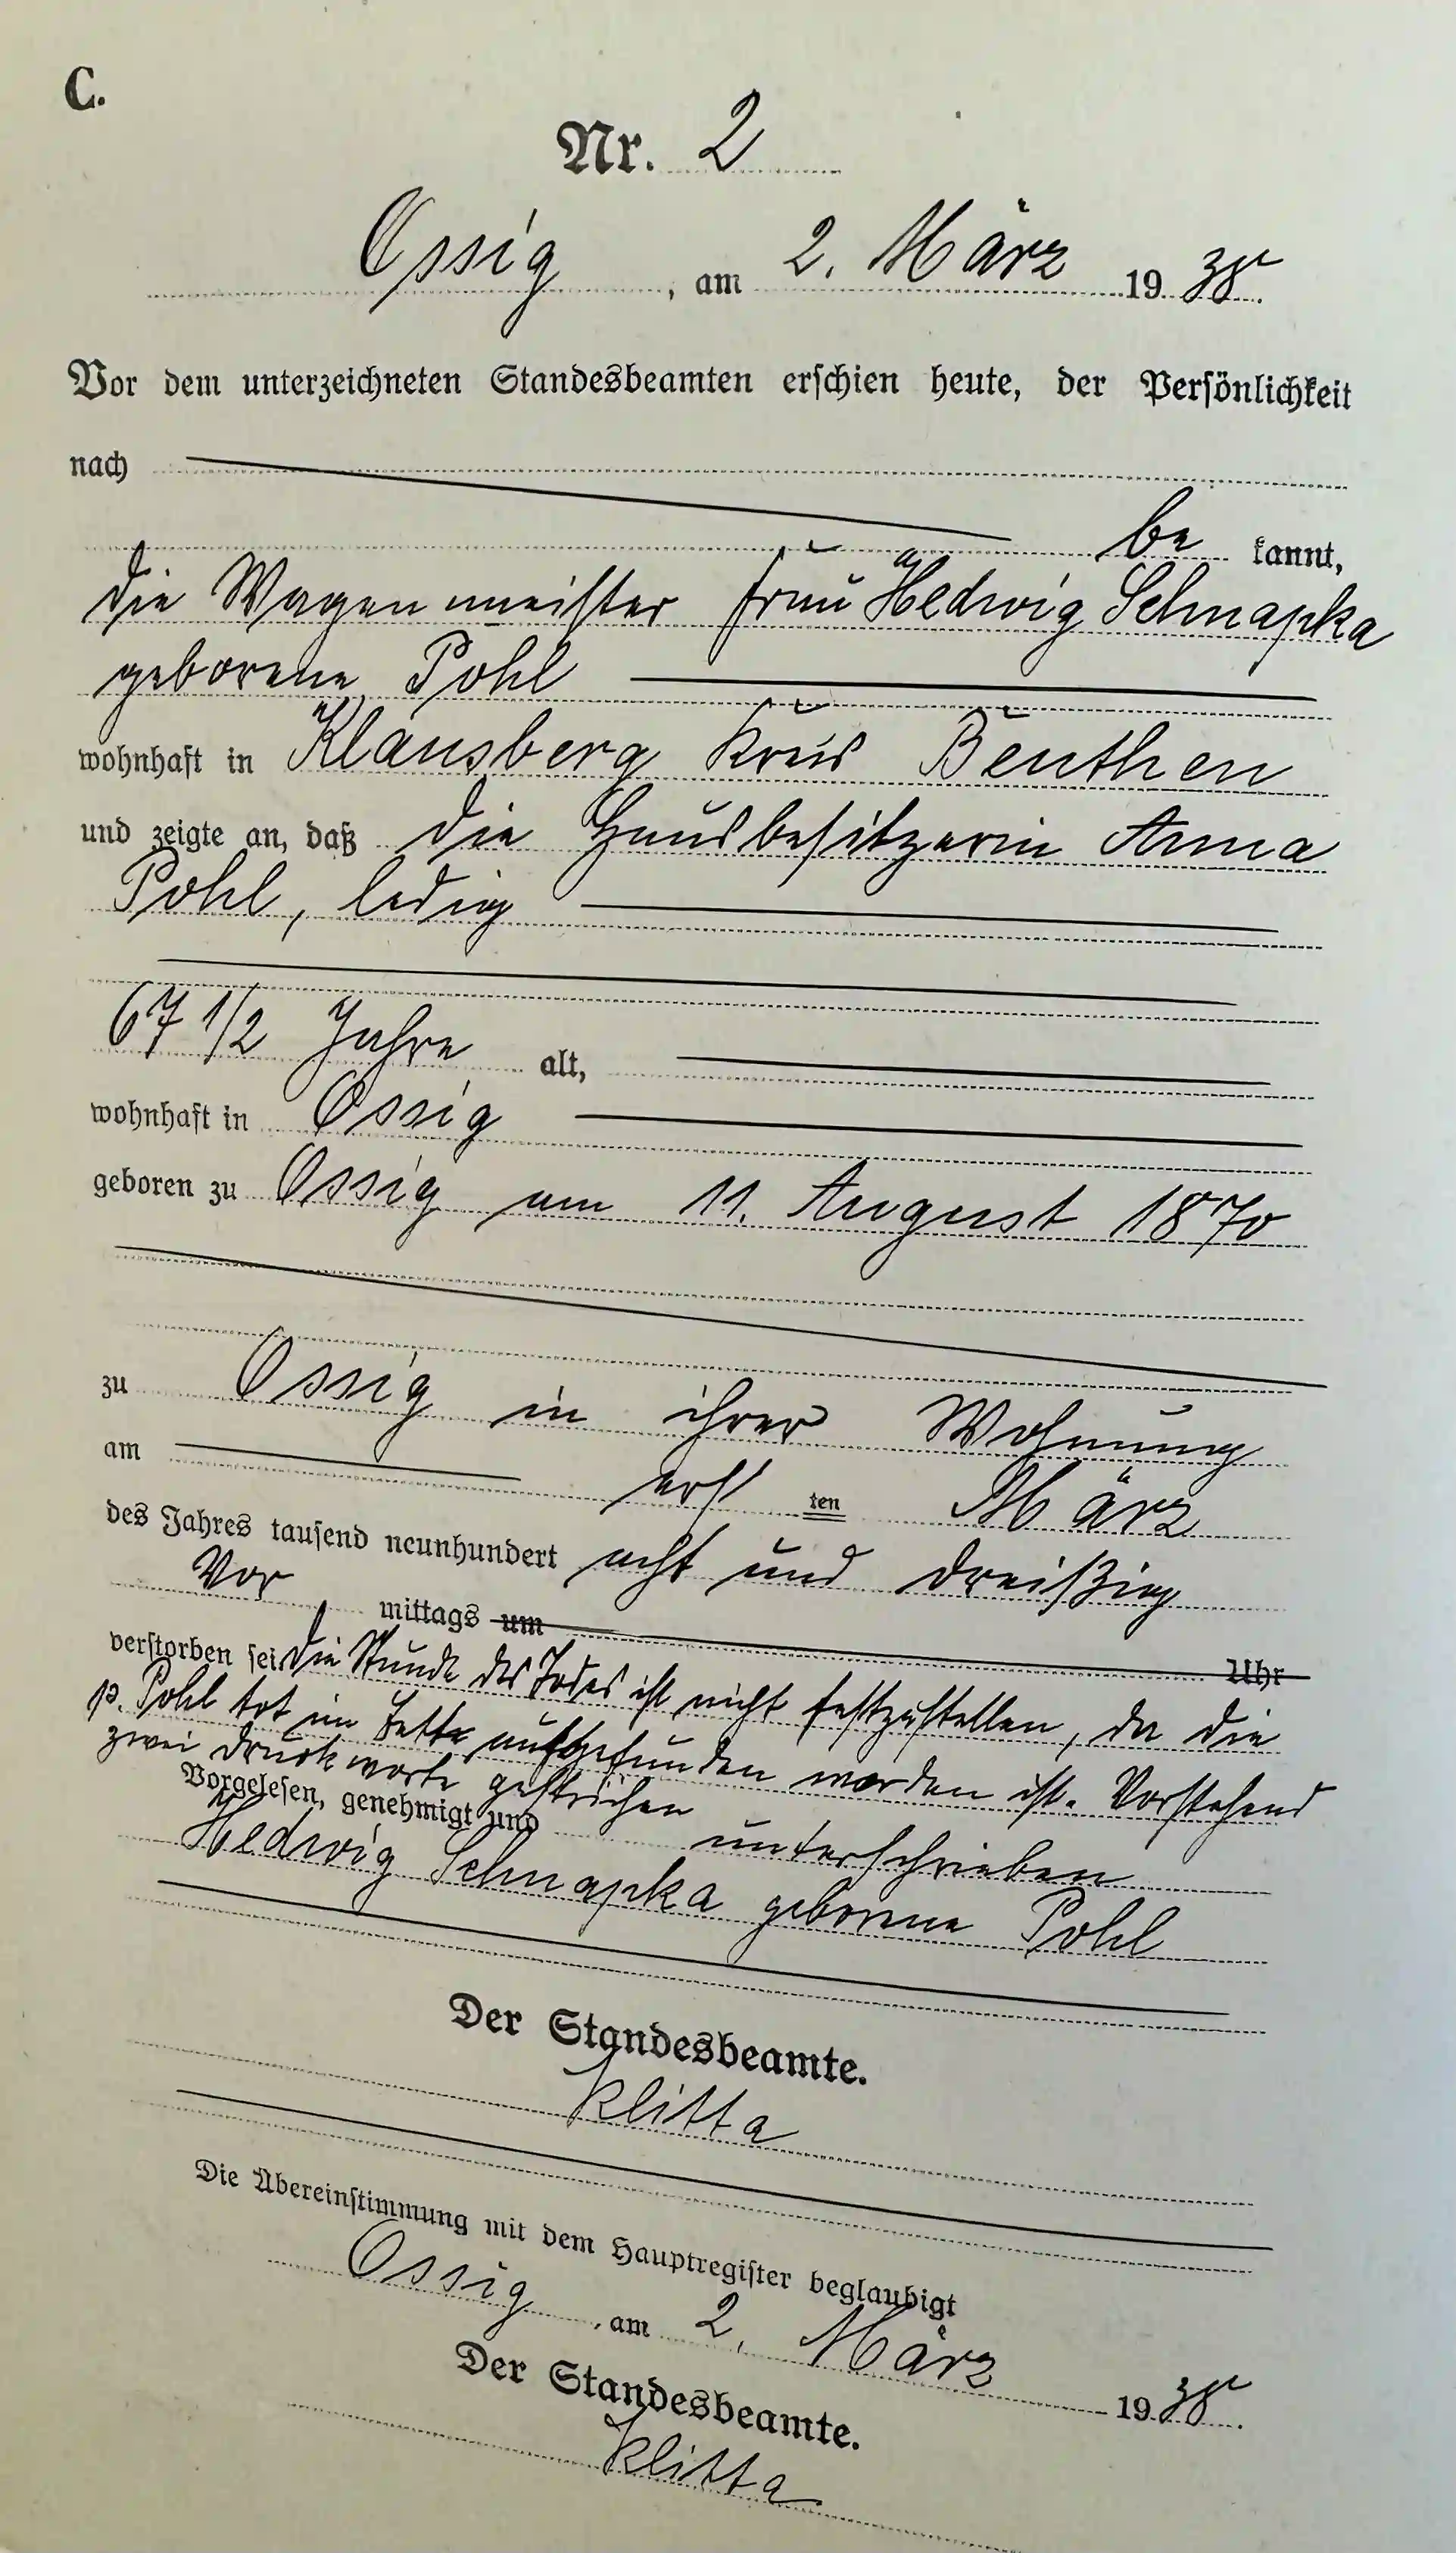 C.
Nr. 2
Ossig, am 2. März 1938.
Vor dem unterzeichneten Standesbeamten erschien heute, der Persönlichkeit
nach
be kannt,
die Wagenmeister frau Hedwig Schnapka
geborene Pohl
wohnhaft in Klausberg Kreis Beuthen
und zeigte an, daß die Hausbesitzerin Anna
Pohl, ledig
67 1/2 Jahre alt,
wohnhaft in Ossig
geboren zu Ossig am 11. August 1870
zu Ossig in ihrer Wohnung
am erst ten März
des Jahres tausend neunhundert acht und dreißig
Vor mittags um Uhr
verstorben sei. Die Stunde des Todes ist nicht festzustellen, da die
p. Pohl tot im Bette aufgefunden worden ist. Vorstehend
zwei Druckworte gestrichen
Vorgelesen, genehmigt und unterschrieben
Hedwig Schnapka geborene Pohl
Der Standesbeamte.
Klitta
Die Übereinstimmung mit dem Hauptregister beglaubigt
Ossig, am 2. März 1938.
Der Standesbeamte.
Klitta